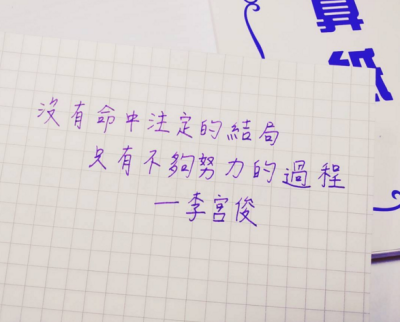 沒有命中注定的結局
只有不夠努力的過程
—李宮俊